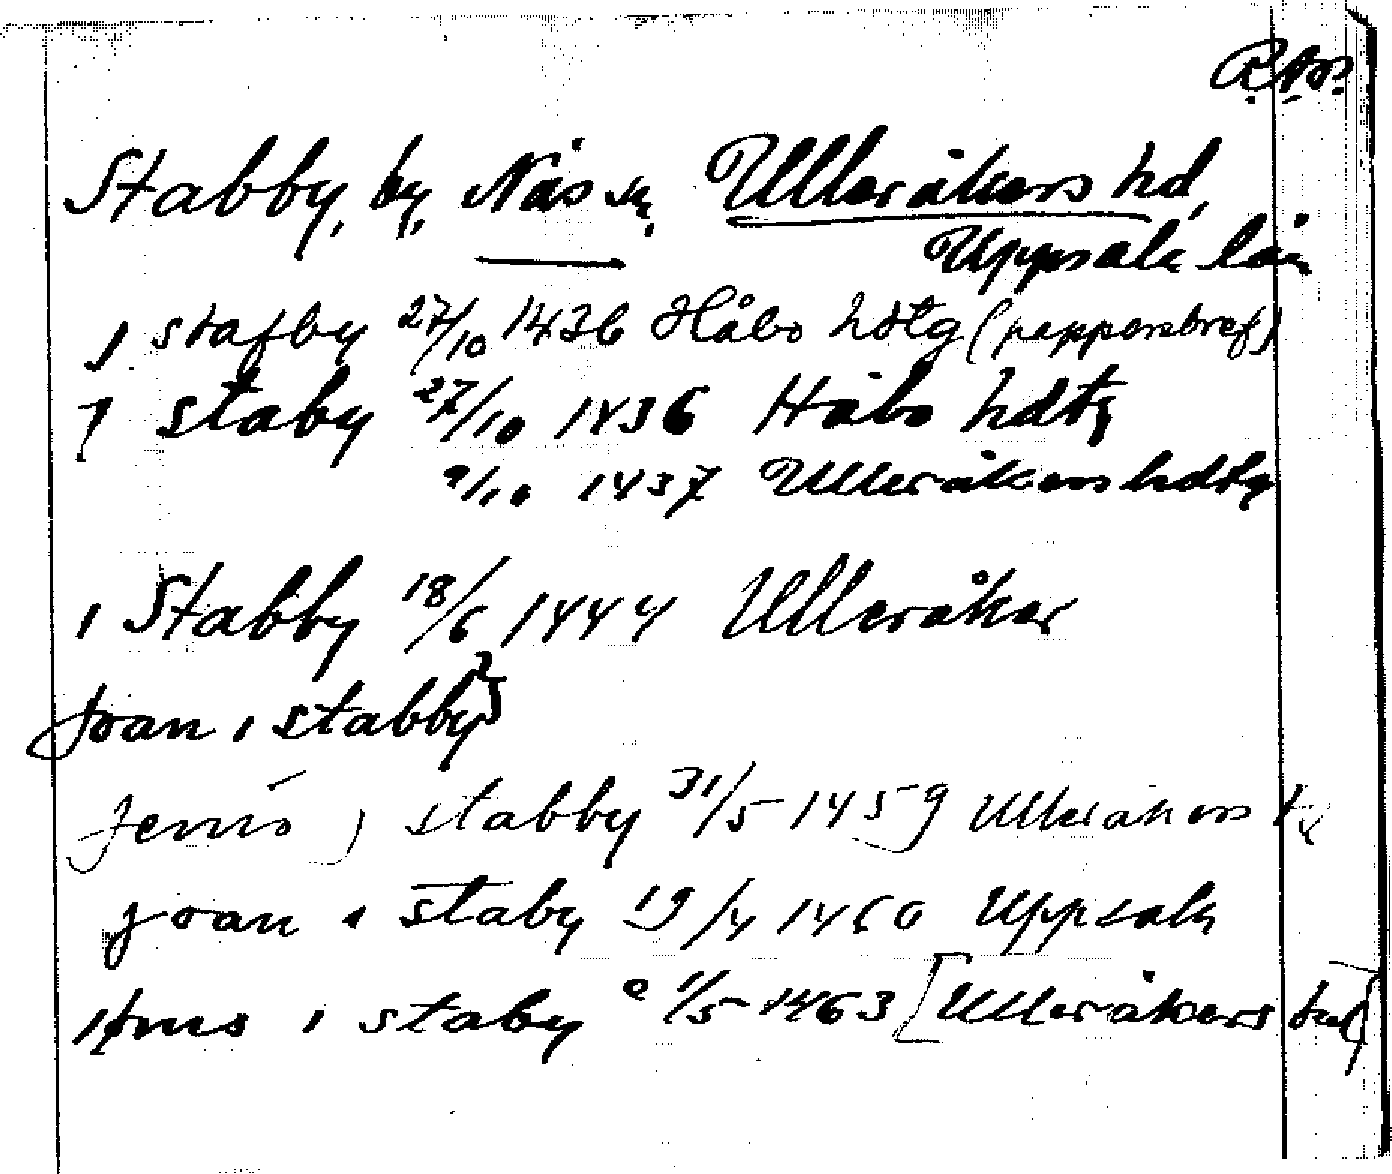 Stabby, by, Näs sn. Ulleråkers hd,
Uppsala län
J stafby 27/10 1436 Håbo hdtg (pappersbref)
J staby 27/10 1436 Håbo hdtg
9/10 1437 Ulleråkers hdtg
i Stabby 18/6 1444 Ulleråker
Joan i stabby
Jenis j stabby 31/5 1459 Ulleråkers
Joan i staby 19/4 1460 Uppsala
i staby e 1/5 1463 [Ulleråkers